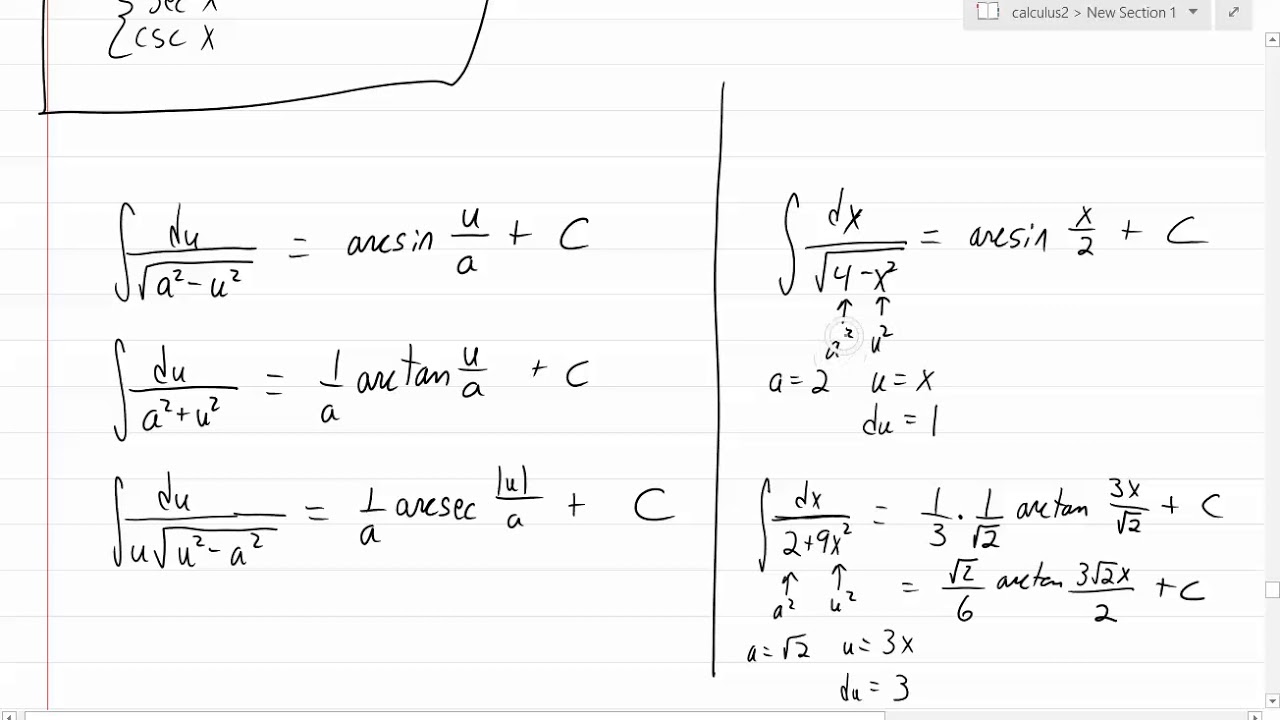 calculus2 > New Section 1
sec x
csc x
∫ du / √(a² − u²) = arcsin u/a + C
∫ du / (a² + u²) = 1/a arctan u/a + C
∫ du / (u√(u² − a²)) = 1/a arcsec |u|/a + C
∫ dx / √(4 − x²) = arcsin x/2 + C
↑ ↑
u²
a = 2 u = x
du = 1
∫ dx / (2 + 9x²) = 1/3 · 1/√2 arctan 3x/√2 + C
↑ ↑
a² u²
= √2/6 arctan 3√2x/2 + C
a = √2 u = 3x
du = 3